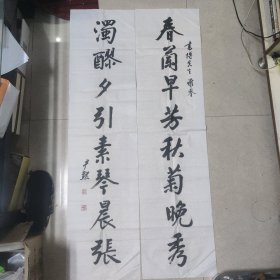 春蘭早芳秋菊晚秀
濁醪夕引素琴晨張